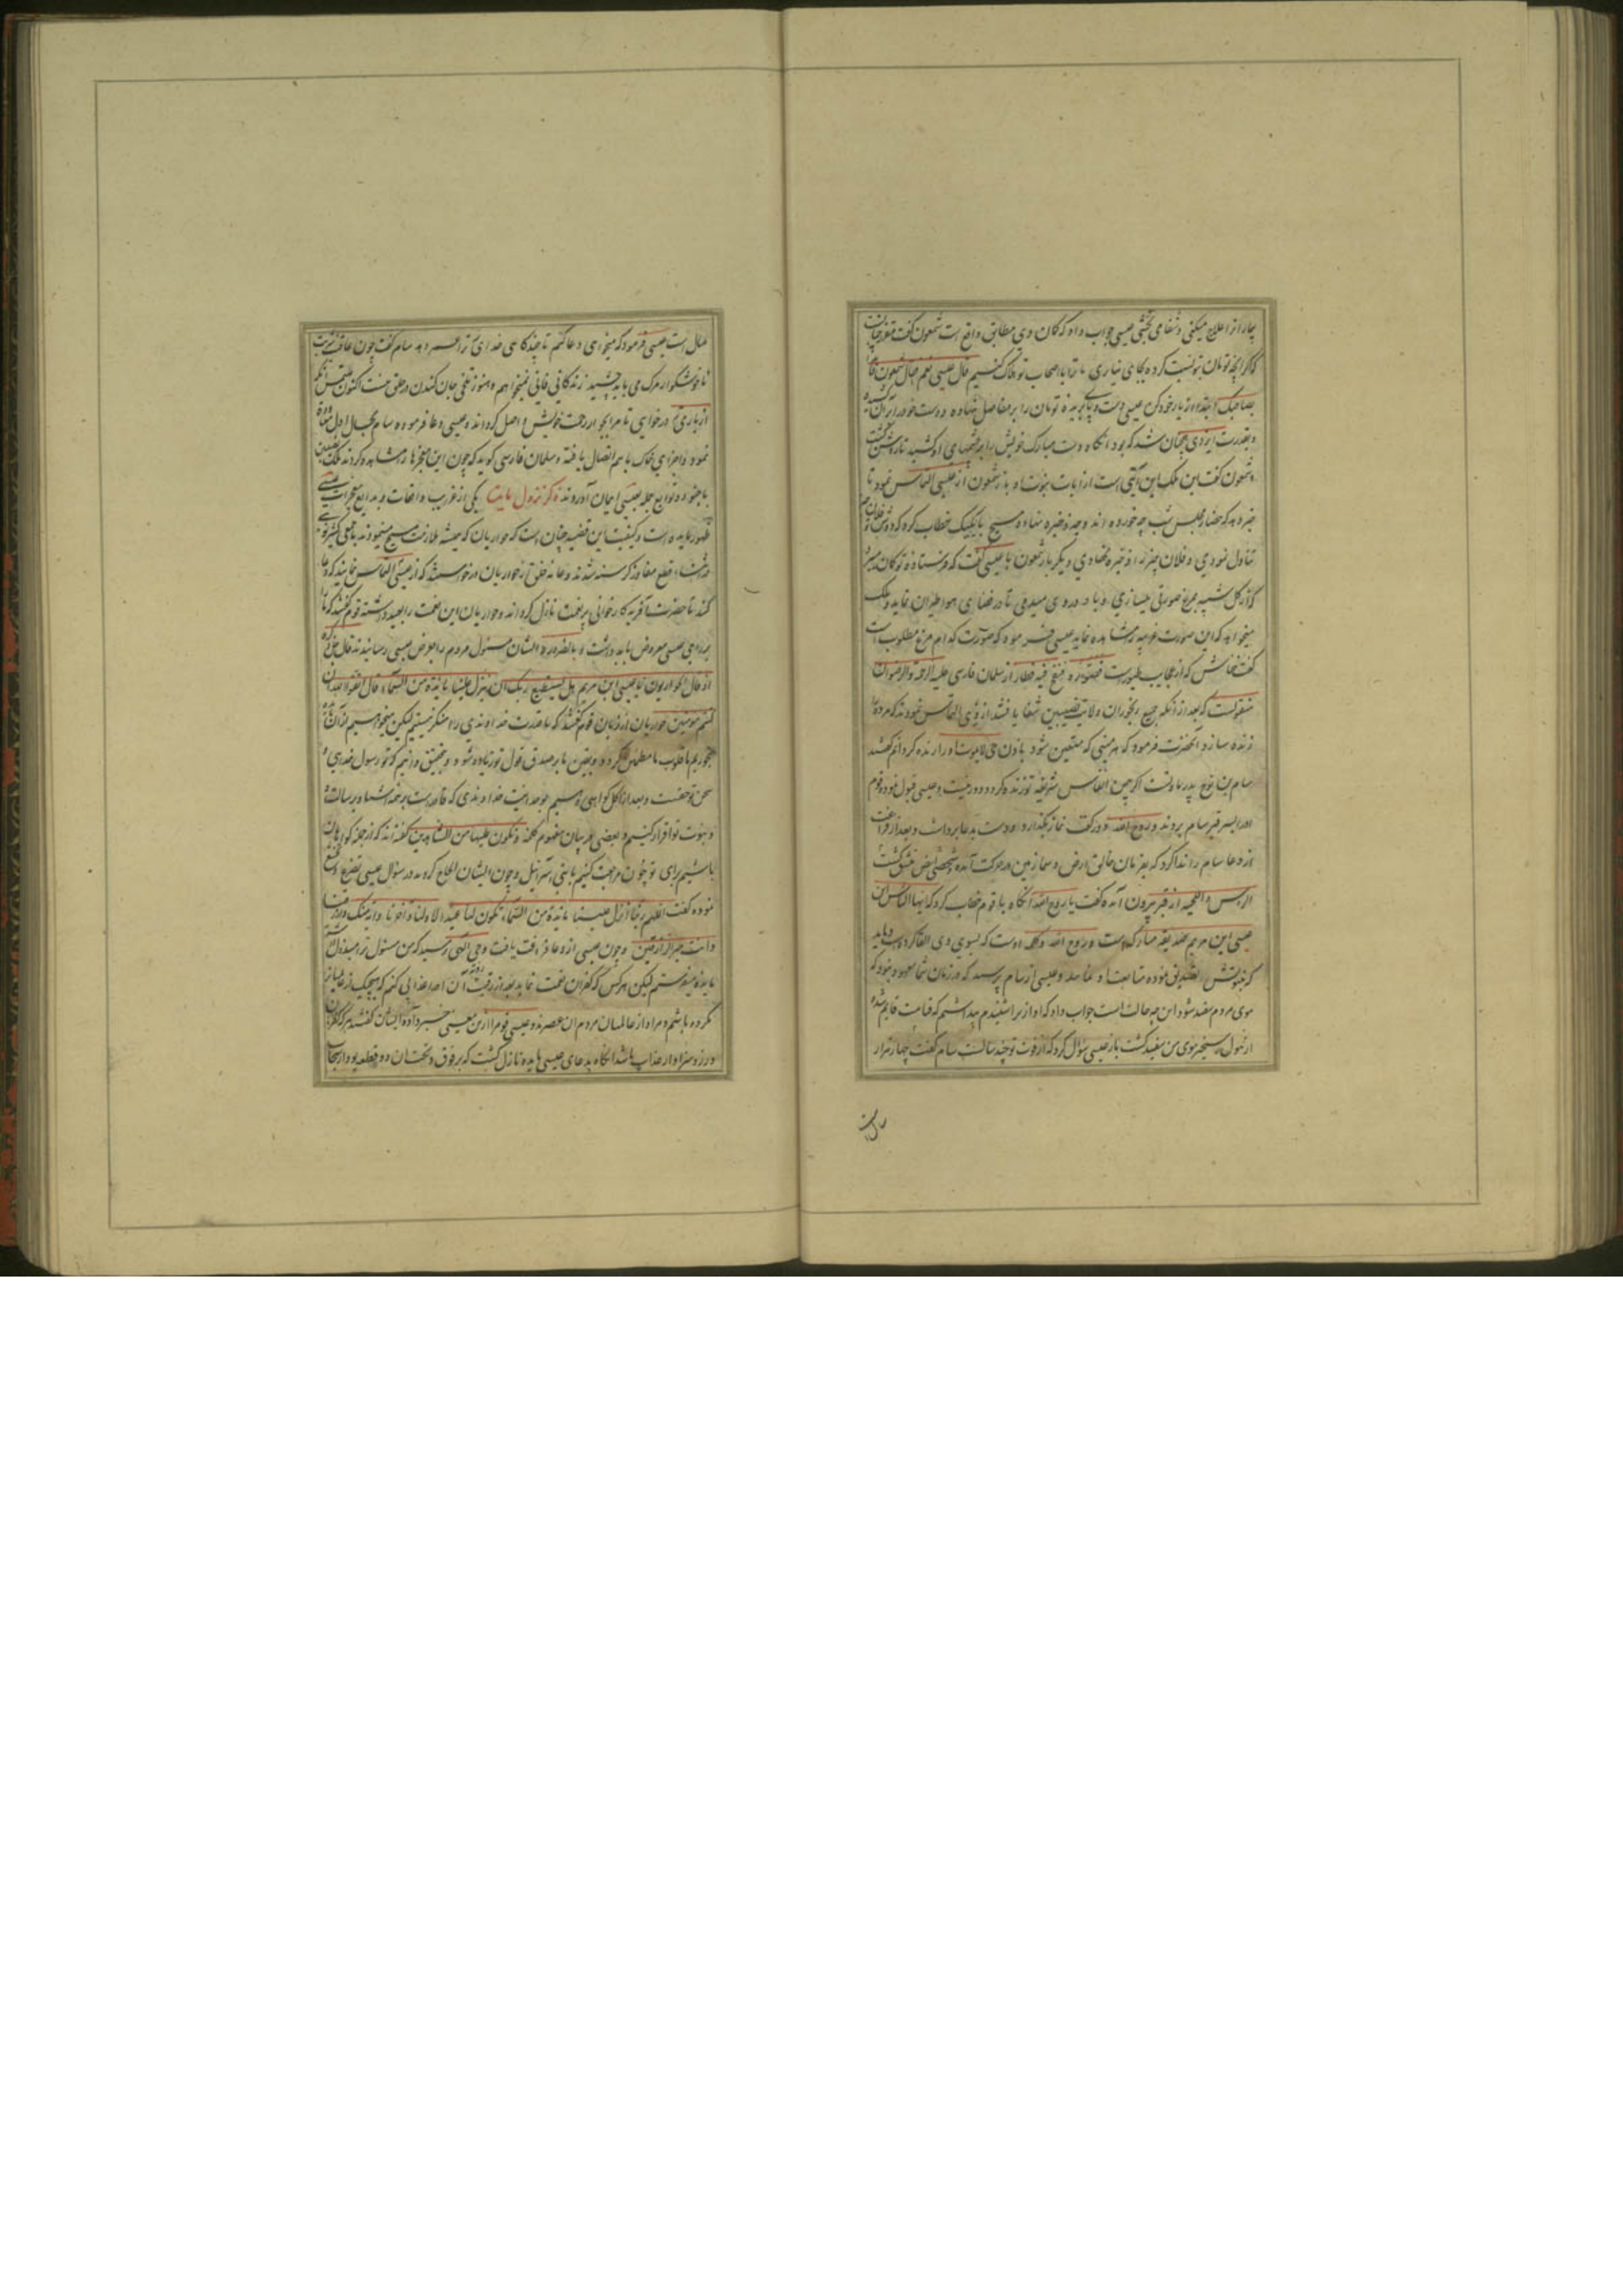 بیمار را علاج میکنی و شفا می بخشی عیسی جواب داد که کان وی مطابق واقع است شمعون گفت
که اگر آنچه تومان بتو نسبت کرده بجای نیاری ما ترا با اصحاب تو هلاک کنیم قال عیسی نعم فقال شمعون
بصاحبک ابتدا از یار خود کن عیسی دست و پای بریده تومان را بر مفاصل نهاده دست خود بر آن کشیده
و بقدرت ایزدی همچنان شد که بود آنگاه دست مبارک خویش را بر چشمهای او کشید تا روشن گشت
و شمعون گفت این ملک این آیتی است از آیات نبوت او باز شمعون از عیسی التماس نمود تا
خبر دهد که حضار مجلس شب چه خورده اند و چه ذخیره نهاده مسیح با یکیک خطاب کرد که تو
تناول نمودی و فلان چیز را ذخیره نهادی دیگر بار شمعون با عیسی گفت که فرستاده تو کان میبرد
که از گل شبیه بمرغ صورتی میسازی و باد در وی میدمی تا در فضای هوا طیران نماید و ملک
میخواهد که این صورت غریبه را مشاهده نماید عیسی فرمود که صورت کدام مرغ مطلوب است
گفت خفاش که از عجایب طیورست فصوره و نفخ فیه فطار از سلمان فارسی علیه الرحمة والرضوان
منقولست که بعد از آنکه جمیع رنجوران ولایت نصیبین شفا یافتند از وی التماس نمودند که مرده
زنده سازد آنحضرت فرمود که هر میتی که متعین شود باذن حی لایموت او را زنده گردانم گفتند
سام بن نوح پدر ماست اگر بیمن انفاس شریفه تو زنده گردد دور نیست و عیسی قبول نموده قوم
او را بسر قبر سام بردند و روح الله دو رکعت نماز بگذارد و دست بدعا برداشت و بعد از فراغت
از دعا سام را ندا کرد که بفرمان خالق ارض و سما زمین در حرکت آمده و شخصی ابیض منشق گشت
الراس و اللحیه از قبر بیرون آمده گفت یا روح الله آنگاه با قوم خطاب کرد که ایها الناس این
عیسی ابن مریم صدیقه مبارکه است و روح الله و کلمه اوست که بسوی وی القا کرده است و باید
که بنبوتش تصدیق نموده متابعت او نمایید و عیسی از سام پرسید که در زمان شما معهود نبود که
موی مردم سفید شود این چه حالت است جواب داد که آواز ترا شنیدم پنداشتم که قیامت قایم شد
از هول رستخیز موی من سفید گشت باز عیسی سؤال کرد که از فوت تو چند سالست سام گفت چهار هزار
سال است
سال است عیسی فرمود که میخواهی دعا کنم تا چندگاهی خدای ترا عمر دهد سام گفت چون عاقبت شربت
ناخوشگوار مرگ می باید چشید زندگانی فانی نمیخواهم و هنوز تلخی جان کندن در حلق منست اکنون ملتمس آنکه
از باری درخواهی تا مرا بجوار رحمت خویش واصل گرداند و عیسی دعا فرموده سام بحال اول
نمود و اجزای خاک باهم اتصال یافته و سلمان فارسی گوید که چون این معجزها را مشاهده کردند ملک نصیبین
با جنود و توابع جمله بعیسی ایمان آوردند ذکر نزول مایده یکی از غرایب واقعات و بدایع معجزات
ظهور مایده است و کیفیت این قضیه چنان است که حواریان که همیشه ملازمت مسیح مینمودند با جمعی کثیر
در اثناء قطع مفاوز گرسنه شدند و عامه خلق از حواریان درخواستند که از عیسی التماس نمایند که دعا
کند تا حضرت آفریدگار خوانی پر نعمت نازل گرداند و حواریان این نعمت را بعید داشته قوم گفتند که
برای عیسی معروض باید داشت و بالضروره ایشان مسئول مردم را بعرض عیسی رسانیدند قال جل ذکره
اذ قال الحواریون یا عیسی ابن مریم هل یستطیع ربک ان ینزل علینا مایدة من السماء قال اتقوا الله ان
کنتم مومنین حواریان از زبان قوم گفتند که ما قدرت خداوندی را منکر نیستیم لیکن میخواهیم از آن مایده
بخوریم تا قلوب ما مطمئن گردد و یقین ما بر صدق قول تو زیاده شود و بتحقیق دانیم که تو رسول خدای و
سخن تو حقست و بعد از اکل گواهی دهیم بوحدانیت خداوندی که قادرست بر همه اشیا و برسالت
و نبوت تو اقرار کنیم و بعضی در بیان مفهوم کلمه و نکون علیها من الشاهدین گفته اند که از جمله گواهان
باشیم برای تو چون مراجعت کنیم با بنی اسرائیل و چون ایشان الحاح کردند در سؤال عیسی تضرع و خشوع
نموده گفت اللهم ربنا انزل علینا مایدة من السماء تکون لنا عیدا لاولنا و آخرنا و آیة منک و ارزقنا
و انت خیر الرازقین و چون عیسی از دعا فراغت یافت وحی الهی رسید که من مسئول ترا مبذول داشته
مایده میفرستم لیکن هر کس که کفران نعمت نماید بعد از رؤیت آن او را عذابی کنم که هیچیک از عالمیان را
نکرده باشم و مراد از عالمیان مردم آن عصرند و عیسی قوم را از این معنی خبر داد و ایشان گفتند هر که کفران
ورزد سزاوار عذاب باشد آنگاه بدعای عیسی مایده نازل گشت که بر فوق و تحت آن دو قطعه بود از سحاب